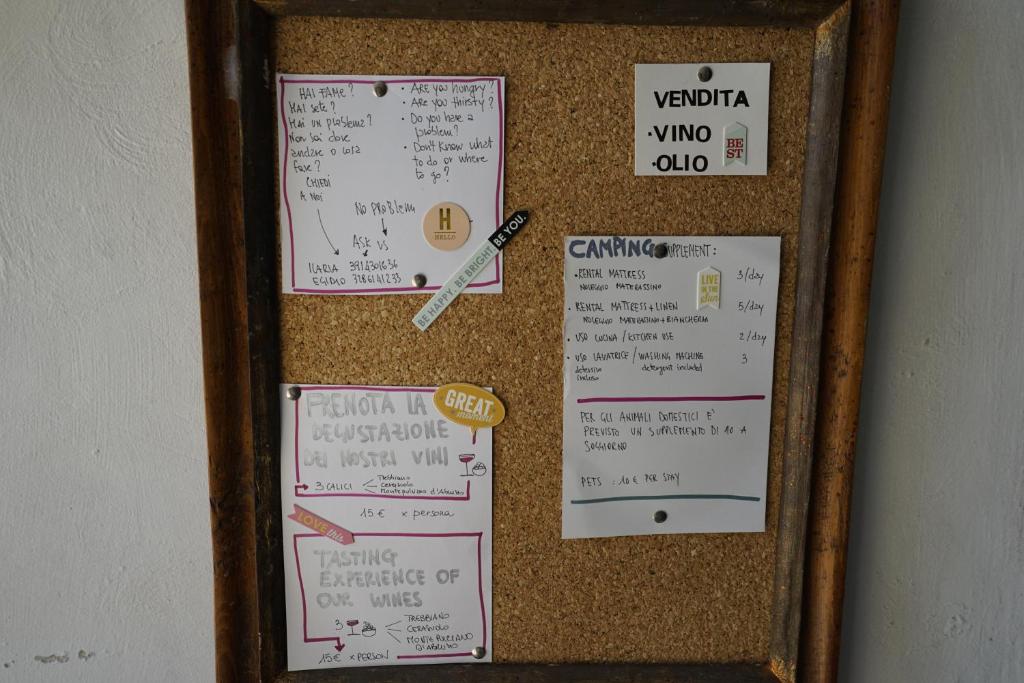 HAI FAME?
HAI sete?
Hai un problema?
Non sai dove
andare o cosa
fare?
CHIEDI
A NOI
• ARE you hungry?
• ARE you thirsty?
• Do you have a
problem?
• Don't know what
to do or where
to go?
NO PROBlem
ASK US
ILARIA 3914301636
EGIDIO 3286141233
H
HELLO
BE HAPPY. BE BRIGHT. BE YOU.
VENDITA
•VINO
•OLIO
BE
ST
CAMPING SUPPLEMENT:
• RENTAL MATTRESS 3/day
NOLEGGIO MATERASSINO
LIVE
IN THE
Sun
• RENTAL MATTRESS + LINEN 5/day
NOLEGGIO MATERASSINO + BIANCHERIA
• USO CUCINA / KITCHEN USE 2/day
• USO LAVATRICE / WASHING MACHINE 3
detersivo detergent included
incluso
PER GLI ANIMALI DOMESTICI E'
PREVISTO UN SUPPLEMENTO DI 10 A
SOGGIORNO
PETS : 10 € PER STAY
PRENOTA LA
DEGUSTAZIONE
DEI NOSTRI VINI
GREAT
3 CALICI
Trebbiano
Cerasuolo
Montepulciano d'Abruzzo
15 € x persona
LOVE this
TASTING
EXPERIENCE OF
OUR WINES
3
TREBBIANO
CERASUOLO
MONTEPULCIANO
D'ABRUZZO
15€ x PERSON